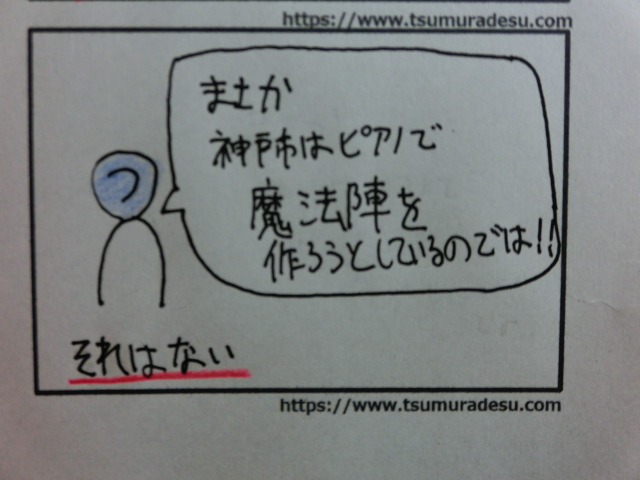 https://www.tsumuradesu.com
まさか
神戸市はピアノで
魔法陣を
作ろうとしているのでは!!
つ
それはない
https://www.tsumuradesu.com